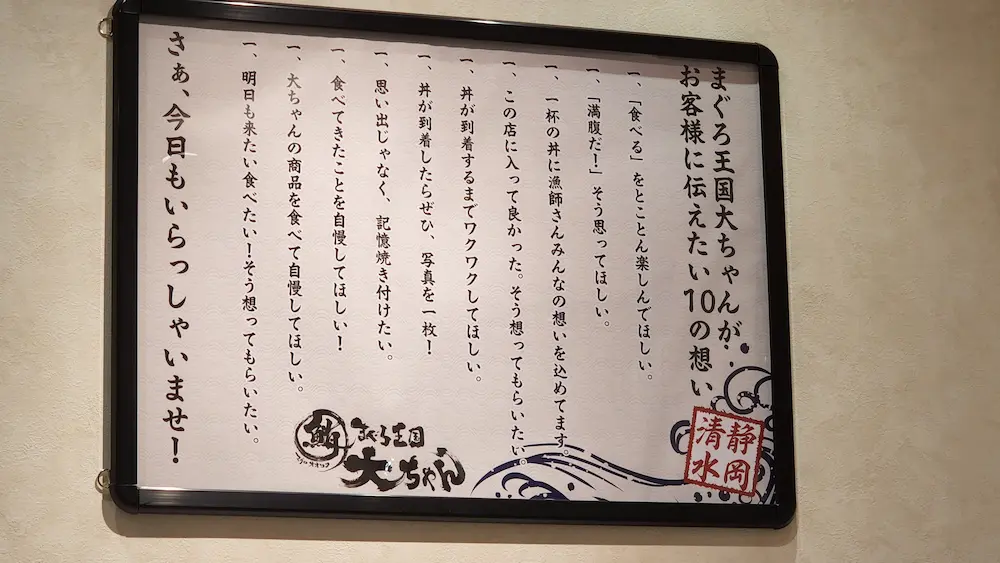 まぐろ王国大ちゃんが
お客様に伝えたい10の想い
一、「食べる」をとことん楽しんでほしい。
一、「満腹だ！」そう思ってほしい。
一、一杯の丼に漁師さんみんなの想いを込めてます。
一、この店に入って良かった。そう想ってもらいたい。
一、丼が到着するまでワクワクしてほしい。
一、丼が到着したらぜひ、写真を一枚！
一、思い出じゃなく、記憶焼き付けたい。
一、食べてきたことを自慢してほしい！
一、大ちゃんの商品を食べて自慢してほしい。
一、明日も来たい食べたい！そう想ってもらいたい。
さぁ、今日もいらっしゃいませ！
静岡
清水
まぐろ王国
大ちゃん